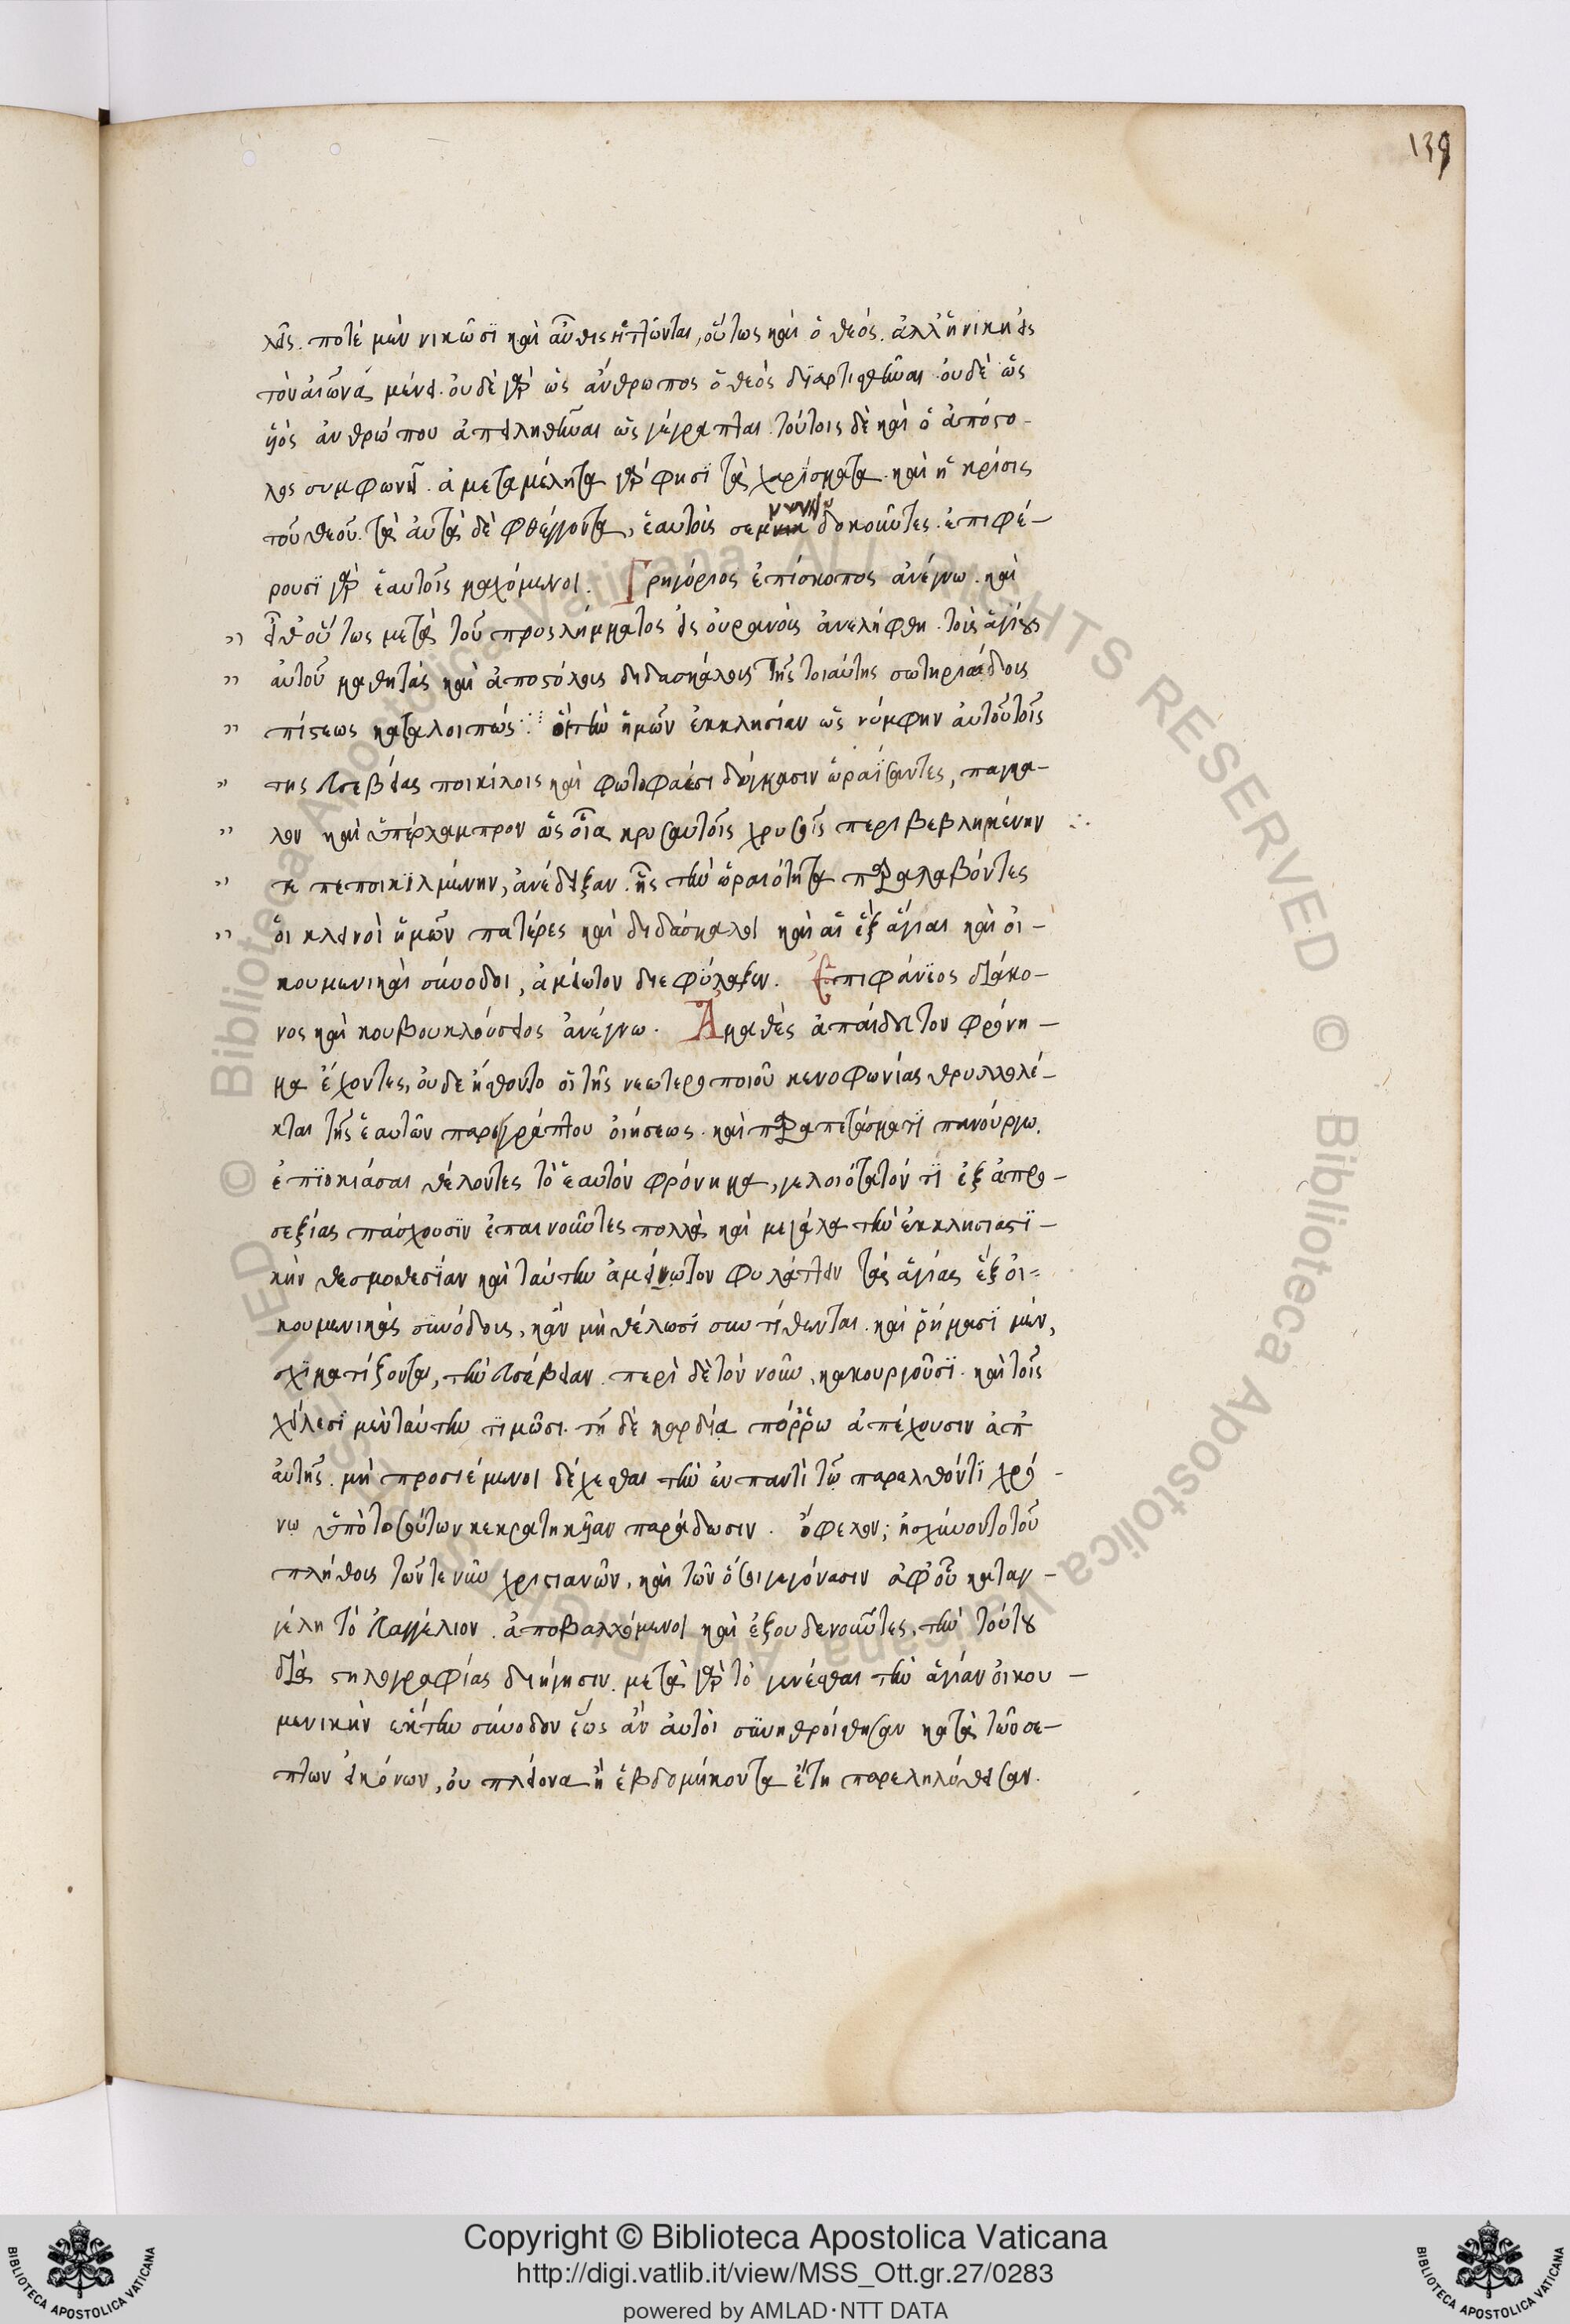 139
λεῖς. ποτὲ μὲν νικῶσϊ καὶ αὖθις ἡττῶνται, οὕτως καὶ ὁ θεός. ἀλλ' ἡ νίκη εἰς
τὸν αἰῶνα μένει. οὐδὲ γὰρ ὡς ἄνθρωπος ὁ θεὸς διαρτισθῆναι. οὐδὲ ὡς
υἱὸς ἀνθρώπου ἀπειληθῆναι ὡς γέγραπται. τούτοις δὲ καὶ ὁ ἀπόστο-
λος συμφωνεῖ. ἀμεταμέλητα γὰρ φησϊ τὰ χαρίσματα. καὶ ἡ κρίσις
τοῦ θεοῦ. τὰ αὐτὰ δὲ φθέγγονται, ἑαυτοὺς σεμνύνειν δοκοῦντες. ἐπιφέ-
ρουσϊ γὰρ ἑαυτοῖς μαχόμενοι. Γρηγόριος ἐπίσκοπος ἀνέγνω. καὶ
εἶθ' οὕτως μετὰ τοῦ προσλήμματος εἰς οὐρανοὺς ἀνελήφθη. τοὺς ἁγίους
αὐτοῦ μαθητὰς καὶ ἀποστόλους διδασκάλους τῆς τοιαύτης σωτηριώδους
πίστεως καταλοιπώς. οἳ τὴν ἡμῶν ἐκκλησίαν ὡς νύμφην αὐτοῦ τοῖς
τῆς εὐσεβείας ποικίλοις καὶ φωτοφαέσι δόγμασιν ὡραΐσαντες, παγκα-
λον καὶ ὑπέρλαμπρον ὡς οἷα κροσσωτοῖς χρυσοῖς περιβεβλημένην
τε πεποικιλμένην, ἀνέδειξαν. ἧς τὴν ὡραιότητα παραλαβόντες
οἱ κλεινοὶ ἡμῶν πατέρες καὶ διδάσκαλοι καὶ αἱ ἓξ ἅγιαι καὶ οἰ-
κουμενικαὶ σύνοδοι, ἀμείωτον διεφύλαξαν. Ἐπιφάνϊος διάκο-
νος καὶ κουβουκλείσιος ἀνέγνω. Ἀμαθὲς ἀπαίδευτον φρόνη-
μα ἔχοντες, οὐδὲ ᾔσθοντο οἱ τῆς νεωτεροποιοῦ κενοφωνίας θρυλλολέ-
κται τῆς ἑαυτῶν παρεγγράπτου οἰήσεως. καὶ παραπετάσματϊ πανούργω.
ἐπϊσκιάσαι θέλοντες τὸ ἑαυτὸν φρόνημα, γελοιότατόν τϊ ἐξ ἀπρο-
σεξίας πάσχουσϊν ἐπαινοῦντες πολλὰ καὶ μεγάλα τὴν ἐκκλησιαστϊ-
κὴν θεσμοθεσίαν καὶ ταύτην ἀμείωτον φυλάττειν τὰς ἁγίας ἓξ οἰ=
κουμενικὰς συνόδους, κἂν μὴ θέλωσϊ συντίθενται. καὶ ῥήμασϊ μὲν,
σχϊματίζονται, τὴν εὐσέβειαν. περὶ δὲ τὸν νοῦν, κακουργοῦσϊ. καὶ τοῖς
χείλεσϊ μὲν ταύτην τϊμῶσι. τῇ δὲ καρδία πόῤῥω ἀπέχουσιν ἀπ'
αὐτῆς. μὴ προσιέμενοι δέχεσθαι τὴν ἐν παντὶ τῶ παρελθόντϊ χρό-
νω ὑπὸ τοσούτων κεκρατηκυῖαν παράδωσιν. ὄφελον; ἠσχύνοντο τοῦ
πλήθους τῶν τε νῦν χριστιανῶν, καὶ τῶν ὅσοι γεγόνασιν ἀφ' οὗ καταγ-
γέλη τὸ εὐαγγέλιον. ἀποβαλλόμενοι καὶ ἐξουδενοῦντες, τὴν τούτου
διὰ στηλογραφίας διήγησιν. μετὰ γὰρ τὸ γενέσθαι τὴν ἁγίαν οἰκου-
μενικὴν ἕκτην σύνοδον ἕως ἂν αὐτοὶ συνηθροίσθησαν κατὰ τῶν σε-
πτων εἰκόνων, οὐ πλείονα ἢ ἑβδομήκοντα ἔτη παρεληλύθεισαν.
Copyright © Biblioteca Apostolica Vaticana
http://digi.vatlib.it/view/MSS_Ott.gr.27/0283
powered by AMLAD·NTT DATA